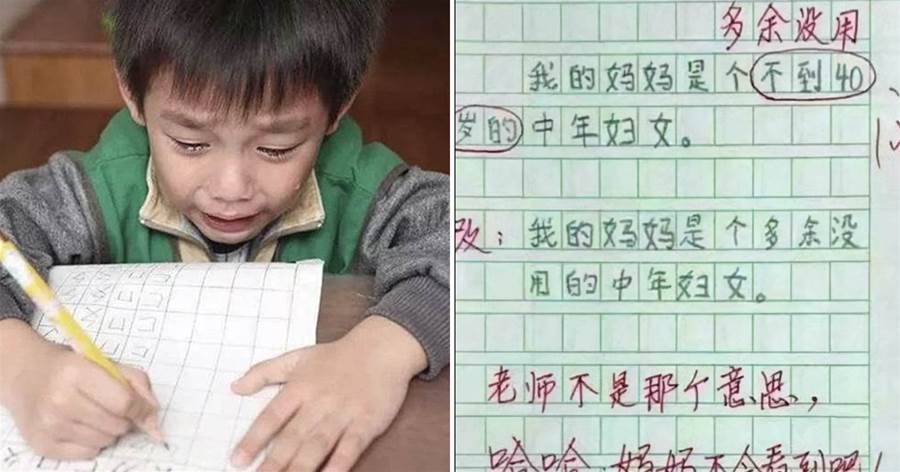 多余没用
我的妈妈是个不到40
岁的中年妇女。
改：我的妈妈是个多余没
用的中年妇女。
老师不是那个意思，
哈哈，妈妈不会看到吧！